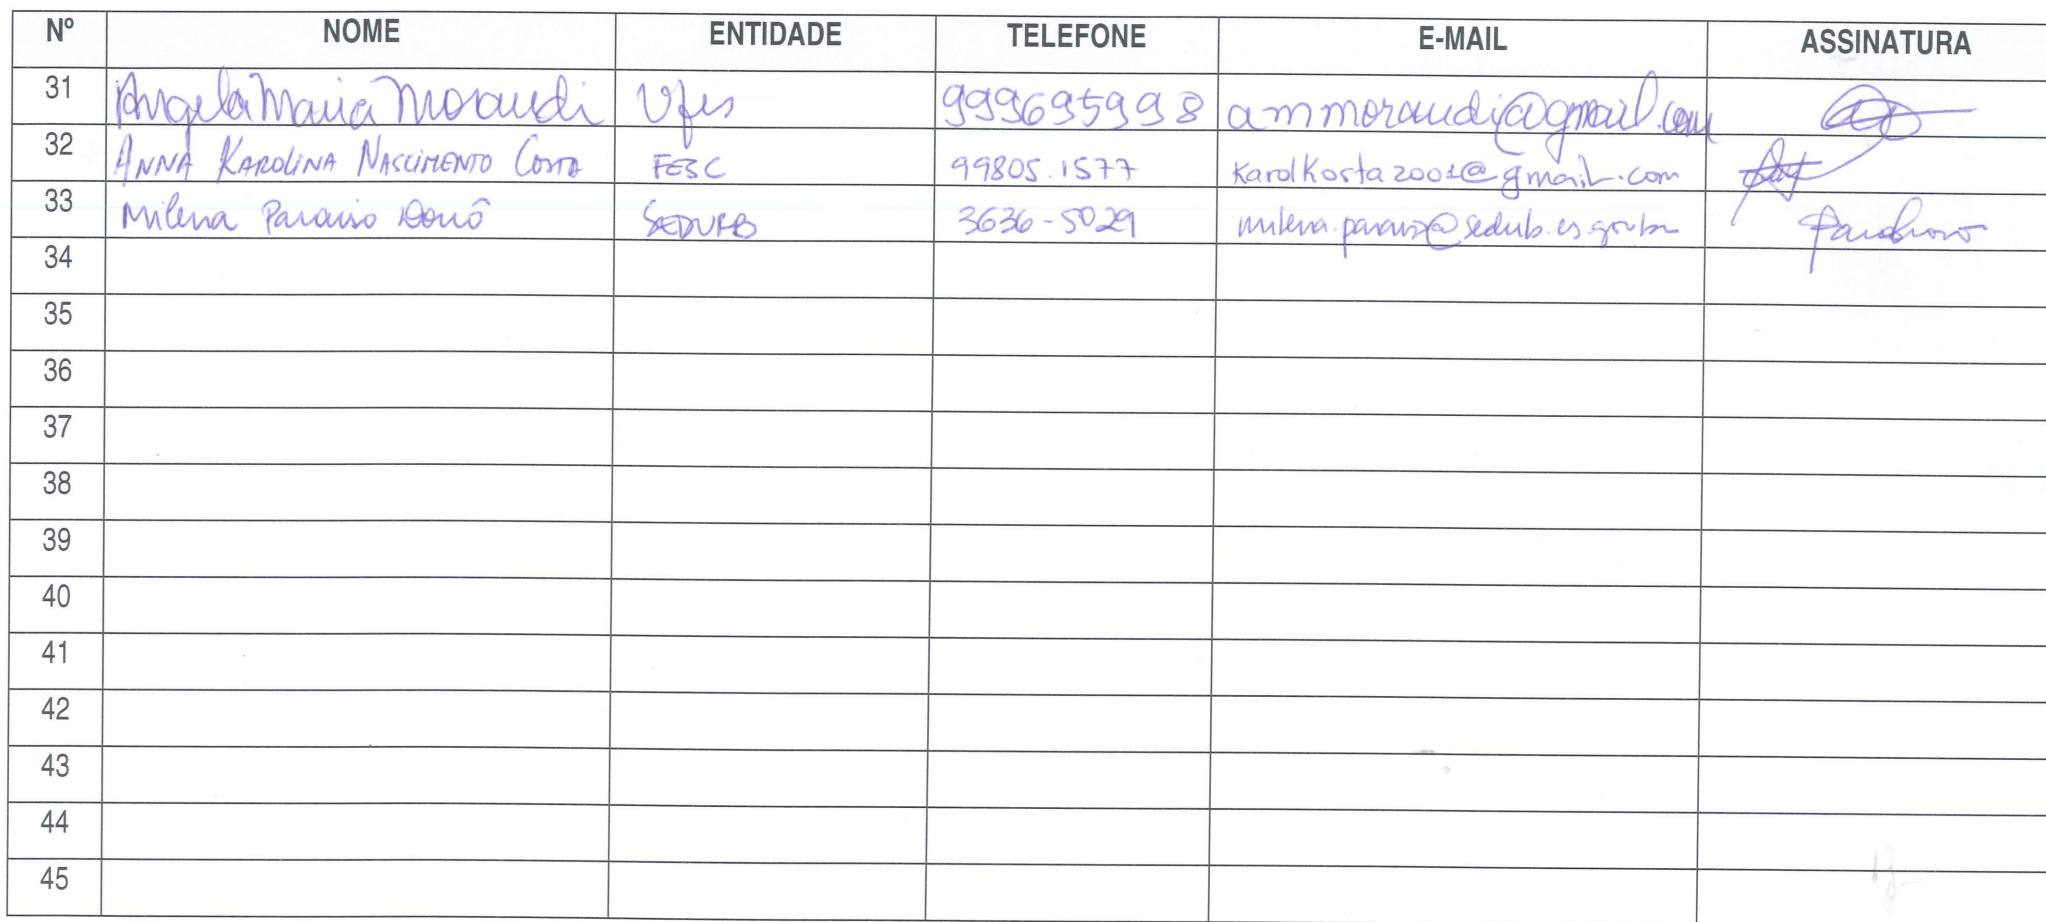 Nº NOME ENTIDADE TELEFONE E-MAIL ASSINATURA
31 Angela Maria Morandi Ufes 999695998 ammorandi@gmail.com
32 ANNA KAROLINA NASCIMENTO COSTA FESC 99805.1577 Karolkosta2001@gmail.com
33 Milena Paraiso Donô SEDURB 3636-5029 milena.paraiso@sedurb.es.gov.br
34
35
36
37
38
39
40
41
42
43
44
45